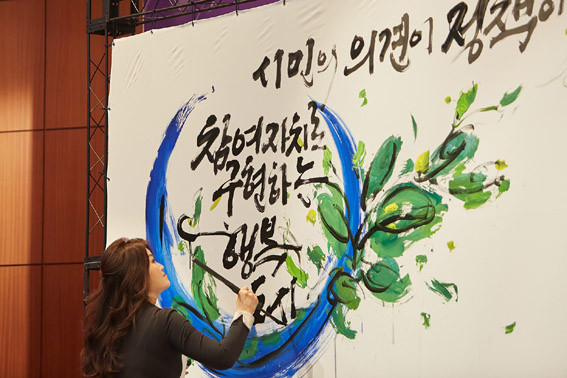 시민의 의견이 정책이
참여자치로
구현하는
행복
도시